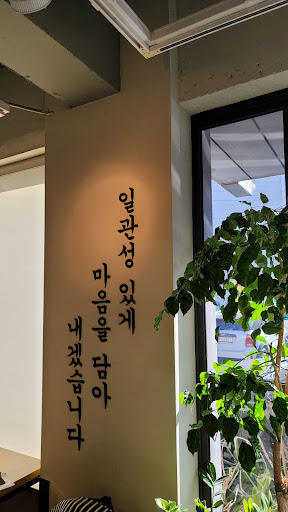 일관성 있게
마음을 담아
내겠습니다